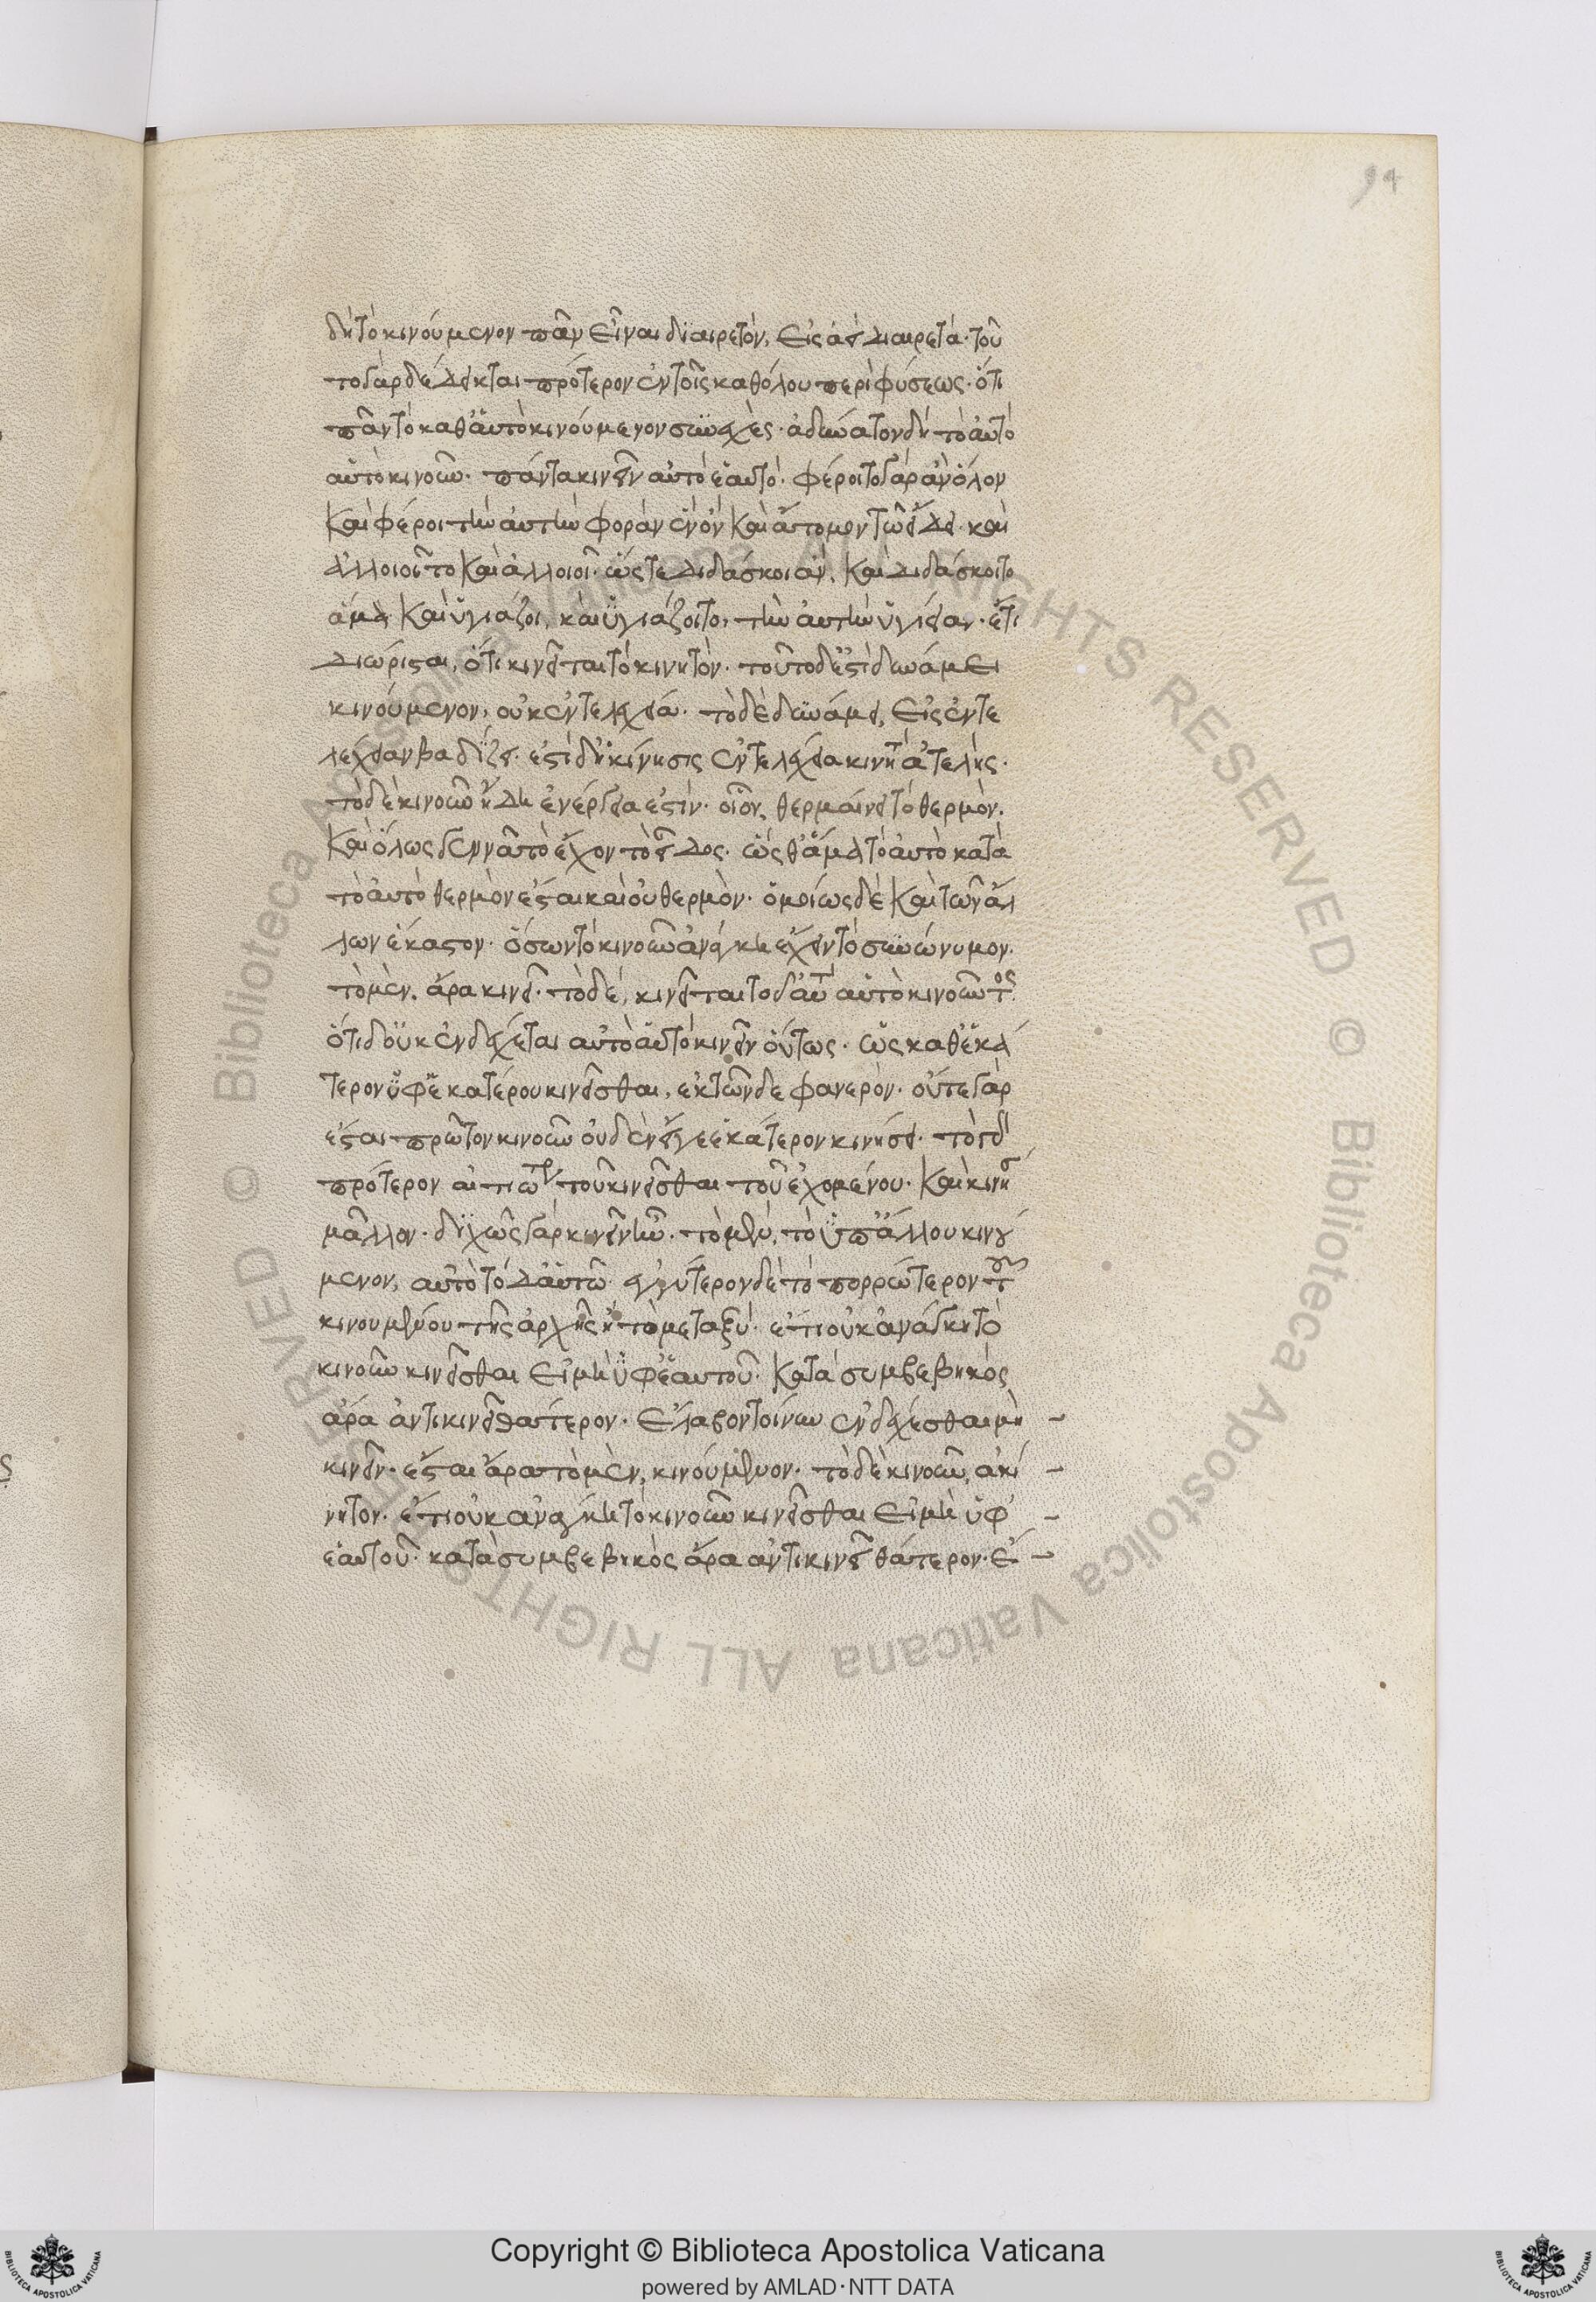 94
δὴ τὸ κινούμενον πᾶν εἶναι διαιρετὸν, εἰς ἀεὶ διαιρετά· τοῦ
το γὰρ δέδεικται πρότερον ἐν τοῖς καθόλου περὶ φύσεως· ὅτι
πᾶν τὸ καθ' αὑτὸ κινούμενον συνεχές· ἀδύνατον δὴ τὸ αὐτὸ
αὑτὸ κινοῦν· πάντα κινεῖν αὐτὸ ἑαυτό· φέροιτο γὰρ ἂν ὅλον
καὶ φέροι τὴν αὐτὴν φορὰν ἓν ὂν καὶ ἄτομον τῷ εἴδει· καὶ
ἀλλοιοῖτο καὶ ἀλλοιοῖ· ὥστε διδάσκοι ἂν, καὶ διδάσκοιτο
ἅμα καὶ ὑγιάζοι, καὶ ὑγιάζοιτο, τὴν αὐτὴν ὑγίειαν· ἔτι
διώρισται, ὅτι κινεῖται τὸ κινητόν· τοῦτο δ' ἐστὶ δυνάμει
κινούμενον, οὐκ ἐντελεχείᾳ· τὸ δὲ δυνάμει, εἰς ἐντε
λέχειαν βαδίζει· ἐστὶ δ' ἡ κίνησις ἐντελέχεια κινητοῦ ἀτελής·
τὸ δὲ κινοῦν ἤδη ἐνέργεια ἐστίν· οἷον, θερμαίνει τὸ θερμόν·
καὶ ὅλως γεννᾷ τὸ ἔχον τὸ εἶδος· ὥσθ' ἅμα τὸ αὐτὸ κατὰ
τὸ αὐτὸ θερμὸν ἔσται καὶ οὐ θερμόν· ὁμοίως δὲ καὶ τῶν ἄλ
λων ἕκαστον· ὅσων τὸ κινοῦν ἀνάγκη ἔχειν τὸ συνώνυμον·
τὸ μὲν, ἄρα κινεῖ· τὸ δὲ, κινεῖται τοῦ αὐτὸ αὑτὸ κινοῦντος
ὅτι δ' οὐκ ἐνδέχεται αὐτὸ αὑτὸ κινεῖν οὕτως· ὡς καθ' ἑκά
τερον ὑφ' ἑκατέρου κινεῖσθαι, ἐκ τῶνδε φανερόν· οὔτε γὰρ
ἔσται πρῶτον κινοῦν οὐδὲν εἴγε ἑκάτερον κινήσει· τὸ γὰρ
πρότερον αἰτιώτερον τοῦ κινεῖσθαι τοῦ ἐχομένου· καὶ κινήσει
μᾶλλον· διχῶς γὰρ κινεῖν ἦν· τὸ μὲν, τὸ ὑπ' ἄλλου κινού
μενον, αὐτὸ τὸ δ' αὑτῷ· ἐγγύτερον δὲ τὸ πορρώτερον τοῦ
κινουμένου τῆς ἀρχῆς ἢ τὸ μεταξύ· ἔτι οὐκ ἀνάγκη τὸ
κινοῦν κινεῖσθαι εἰ μὴ ὑφ' ἑαυτοῦ· κατὰ συμβεβηκὸς
ἄρα ἀντικινεῖ θάτερον· ἔλαβον τοίνυν ἐνδέχεσθαι μὴ
κινεῖν· ἔσται ἄρα τὸ μὲν, κινούμενον· τὸ δὲ κινοῦν, ἀκί
νητον· ἔτι οὐκ ἀνάγκη τὸ κινοῦν κινεῖσθαι εἰ μὴ ὑφ'
ἑαυτοῦ· κατὰ συμβεβηκὸς ἄρα ἀντικινεῖ θάτερον· ἔ
Biblioteca Apostolica Vaticana ALL RIGHTS RESERVED ©
Copyright © Biblioteca Apostolica Vaticana
powered by AMLAD·NTT DATA